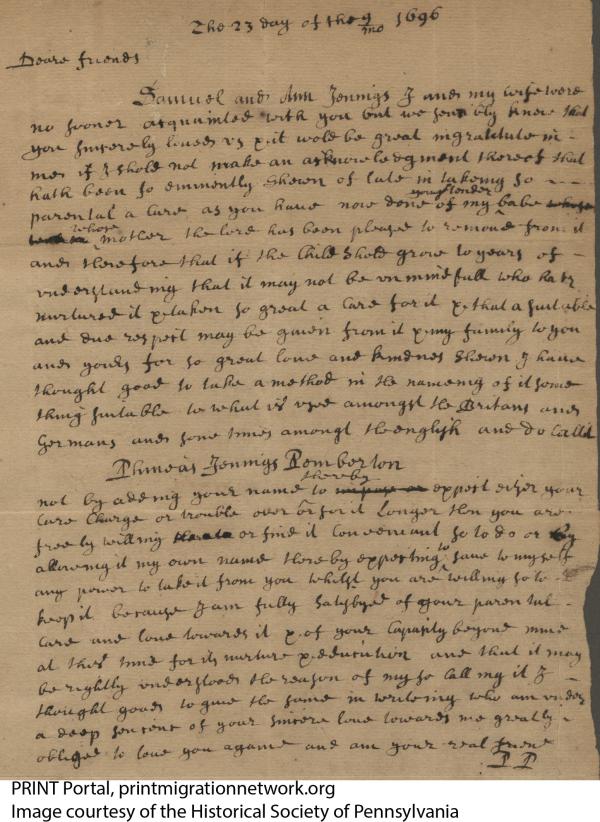 The 23 day of the 9/mo 1696
Deare friends
Samuel and Ann Jennigs I and my wife were
no sooner acquainted with you but we sensibly knew that
you sincerely loved vs & it wold be great ingratitute in
mee if I shold not make an acknowledgment thereof that
hath been so eminently shewn of late in takeing so
parental a care as you have now done of my your tender babe
whose mother the lord has been pleased to remove from it
and therefore that if the Child shold grow to years of
vnderstanding that it may not be vnmindfull who hath
nurtured it & taken so great a care for it & that a suitable
and due respect may be given from it & my family to you
and yours for so great love and kindnes shewn I have
thought good to take a method in the nameing of it some
thing suitable to what is vsed amongst the Britans and
Germans and some times amongst the english and do call it
Phineas Jennigs Pemberton
not by adding your name to thereby expect either your
care Charge or trouble over or for it Longer then you are
freely willing or find it Conveniant so to do or by
allowing it my own name thereby expecting to save to myself
any power to take it from you whilst you are willing so to
keep it because I am fully satisfyed of your parental
care and love towards it & of your Capasity beyond mine
at this time for its nurture & education and that it may
be rightly vnderstood the reason of my so calling it I
thought good to give the same in writeing who am vnder
a deep sence of your sincere love towards me greatly
obliged to love you againe and am your real friend
P P
PRINT Portal, printmigrationnetwork.org
Image courtesy of the Historical Society of Pennsylvania